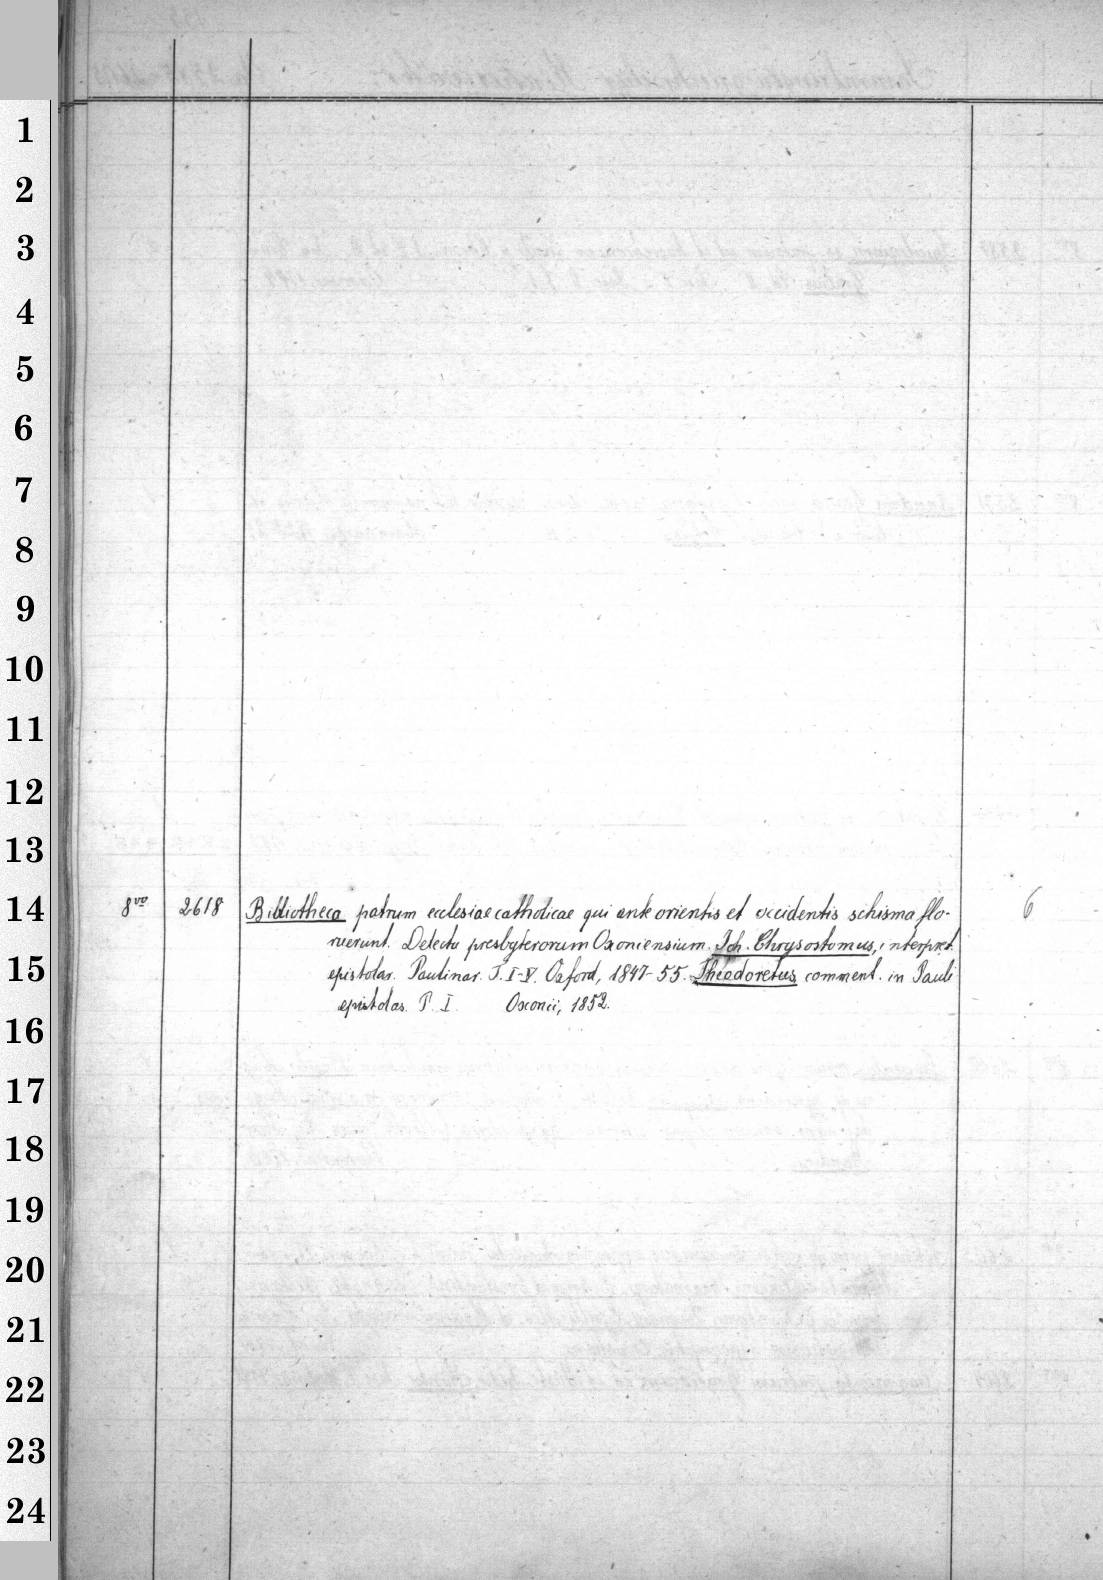 1
2
3
4
5
6
7
8
9
10
11
12
13
14
15
16
17
18
19
20
21
22
23
24
8vo 2618 Bibliotheca patrum ecclesiae catholicae qui ante orientis et occidentis schisma flo- 6
ruerunt. Delectu presbyterorum Oxoniensium. Joh. Chrysostomus, interpret.
epistolar. Paulinar. T. I-V. Oxford, 1847-55. Theodoretus, comment. in Pauli
epistolas. P. I. Oxonii, 1852.